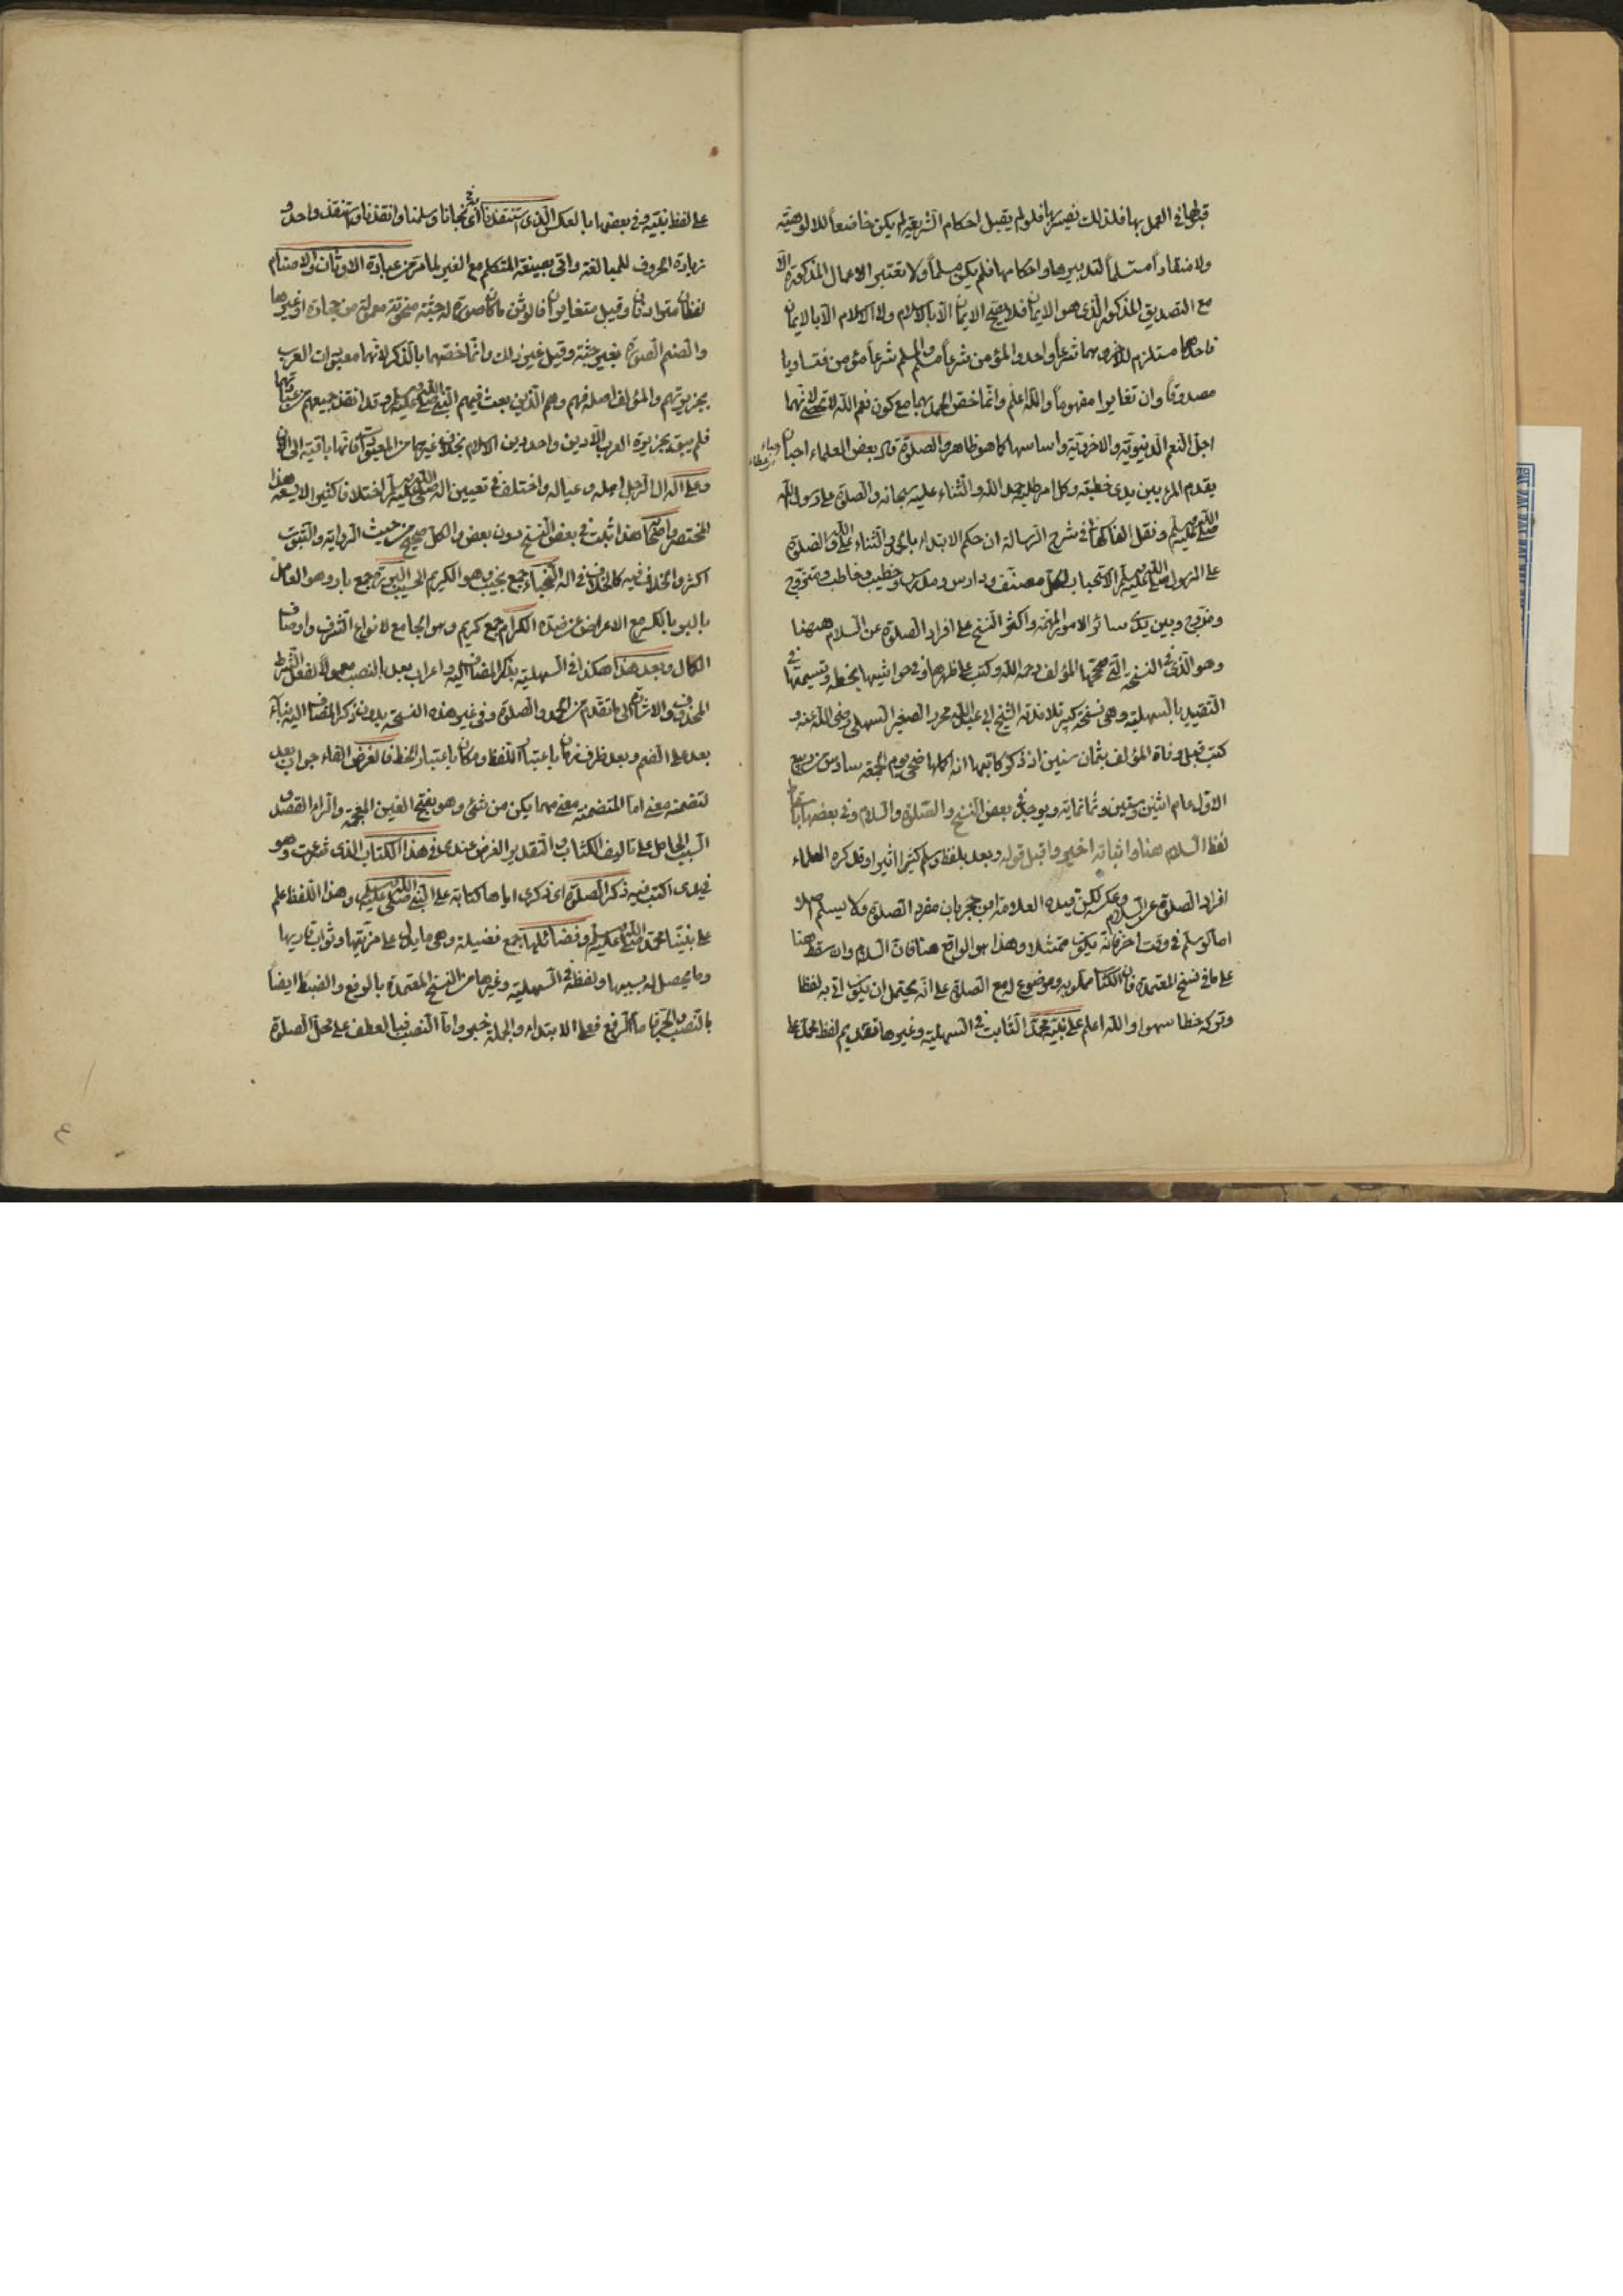 قبلها في العمل بها فلذلك فلو لم يقبل احكام الشريعة لم يكن خاضعاً للالوهية
ولا منقاداً مستسلماً لتدبيرها واحكامها فلم يكن مسلماً ولا تعتبر الاعمال المذكورة الا
مع التصديق المذكور الذى هو الايمان فلا يصح الايمان الا بالاسلام ولا الاسلام الا بالايمان
فاحدهما مستلزم للآخر فهما شرعاً واحد والمؤمن شرعاً مسلم والمسلم شرعاً مؤمن فتساويا
مصدوقاً وان تغايرا مفهوماً والله اعلم وانما خص الحمد بهما مع كون نعم الله لا تحصى لانهما
اجل النعم الدنيوية والاخروية واساسها كما هو ظاهر والصلوة قال بعض العلماء احبان
يقدم المرء بين يدى خطبته وكل امر طلبه حمد الله والثناء عليه سبحانه والصلوة على رسول الله
صلى الله عليه وسلم ونقل الفاكهانى في شرح الرسالة ان حكم الابتداء بالحمد والثناء على الله والصلوة
على الرسول صلى الله عليه وسلم الاستحباب لكل مصنف ودارس ومدرس وخطيب وخاطب ومتزوج
ومزوج وبين يدى سائر الامور المهمة واكثر النسخ على افراد الصلوة عن السلام ههنا
وهو الذى في النسخة التى صححها المؤلف رحمه الله وكتب على ظهرها وفي حواشيها بخطه وتسميتها في
التقييد بالسهلية وهى نسخة كبير تلامذته الشيخ ابى عبد الله محمد الصغير السهلى رضى الله عنه و
كتب قبل وفاة المؤلف بثمان سنين اذ ذكر كاتبها انه اكملها ضحى يوم الجمعة سادس ربيع
الاول عام اثنين وستين وثمانمائة ويوجد في بعض النسخ والصلوة والسلام وفي بعضها باسقاط
لفظ السلام هنا واثباته اخيرا قبل قوله وبعد بلفظ وسلم كثيرا اثيرا وقد كره العلماء
افراد الصلوة عن السلام وعكسه لكن قيده العلامة ابن حجر بان مفرد الصلوة ولا يسلم اصلا
اما لو سلم في وقت اخر فانه يكون ممتثلا وهذا هو الواقع هنا فان السلام وان سقط هنا
على ما في نسخ المعتمدة فان الكتاب مملو به وموضوع له مع الصلوة على انه يحتمل ان يكون اتى به لفظا
وتركه خطا سهوا والله اعلم على نبيه محمد الثابت في السهلية وغيرها تقديم لفظ محمد على
على لفظ نبيه وفي بعضها بالعكس الذى استنقذنا اى نجانا وسلمنا وانقذنا واستنقذ واحد و
زيادة الحروف للمبالغة واتى بصيغة المتكلم مع الغير لما مر من عبادة الاوثان والاصنام
لفظان مترادفان وقيل متغايران فالوثن ما كان صورة له جثة منحوتة معمولة من حجارة او غيرها
والصنم الصورة بغير جثة وقيل غير ذلك وانما خصهما بالذكر لانهما معبودات العرب
بجزيرتهم والمؤلف اصله فهم وهم الذين بعث فيهم النبى صلى الله عليه وسلم وقد انقذ جميعهم من عبادتها
فلم يبق بجزيرة العرب الا دين واحد دين الاسلام بخلاف غيرها من المعبودات فانها باقية الى الان
وعلى اله ال الرجل اهله وعياله واختلف في تعيين اله صلى الله عليه وسلم اختلافا كثيرا لا يسعه هذا
المختصر واصحابه هذا اثبت في بعض النسخ دون بعض والكل صحيح من حيث الرواية والثبوت
اكثر والخلاف فيه كالخلاف في اله النجباء جمع نجيب وهو الكريم الحسيب البررة جمع بار وهو العامل
بالبر بالكسر مع الاعراض عن ضده الكرام جمع كريم وهو الجامع لانواع الشرف واوصاف
الكمال وبعد هذا هكذا في السهلية بذكر المضاف اليه واعراب بعد بالنصب معمولا لفعل الشرط
المحذوف والاشارة الى ما تقدم من الحمد والصلوة وفي غير هذه النسخة بدون ذكر المضاف اليه بناء
بعد على الضم وبعد ظرف زمان باعتبار اللفظ ومكان باعتبار الخط فالغرض الفاء جواب بعد
لتضمنه معنى اما المتضمنة معنى مهما يكن من شئ وهو بفتح الغين المعجمة والراء القصد و
السبب الحامل على تاليف الكتاب والتقدير الغرض عندى في هذا الكتاب الذى شرعت وهو
في يدى اكتب فيه ذكر الصلوة اى ذكرى اياها كتابة على النبى صلى الله عليه وسلم وهذا اللفظ علم
على نبينا محمد صلى الله عليه وسلم وفضائلها جمع فضيلة وهى ما يدل على مزيتها وثواب قاريها
وما يحصل له بسببها ولفظه في السهلية وغيرها من النسخ المعتمدة بالرفع والضبط ايضاً
بالنصب والجر فاما الرفع فعلى الابتداء والجملة خبر واما النصب فبالعطف على محل الصلوة